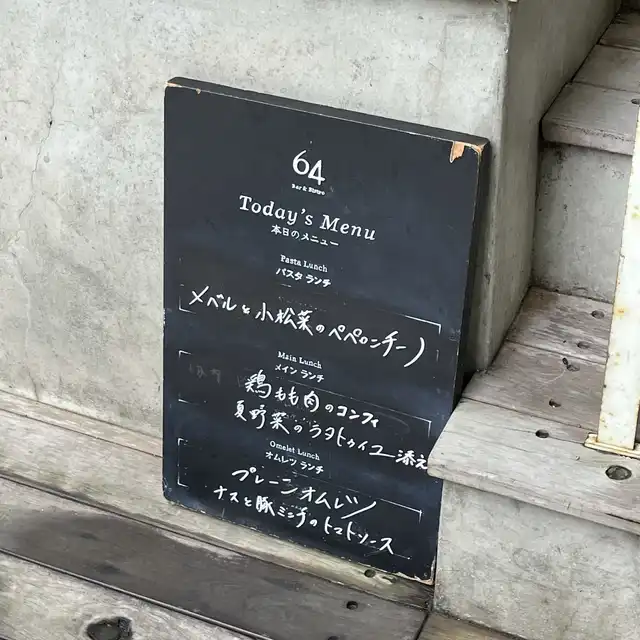 64
Bar & Bistro
Today's Menu
本日のメニュー
Pasta Lunch
パスタ ランチ
メベルと小松菜のペペロンチーノ
Main Lunch
メイン ランチ
鶏もも肉のコンフィ
夏野菜のラタトゥイユ添え
Omelet Lunch
オムレツ ランチ
プレーンオムレツ
ナスと豚ミンチのトマトソース